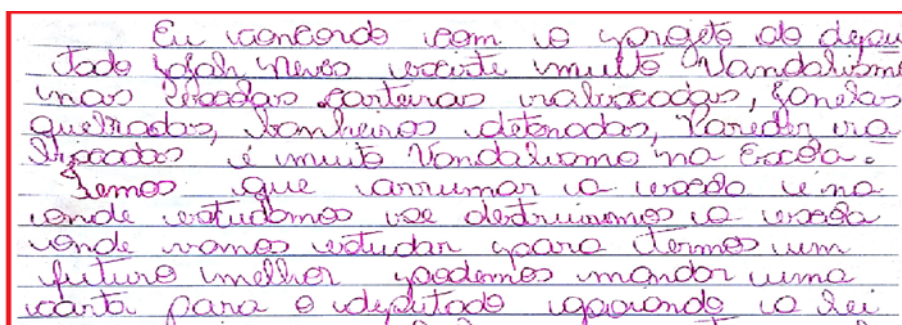 Eu concordo com o projeto do depu
tado Jofah Neves existe muito Vandalismo
nas escolas carteiras rabiscadas, Janelas
quebradas, banheiros detonados, Paredes ra
biscadas é muito Vandalismo na Escola.
Temos que arrumar a escola é na
onde estudamos se destruirmos a escola
onde vamos estudar para termos um
futuro melhor podemos mandar uma
carta para o deputado apoiando a lei